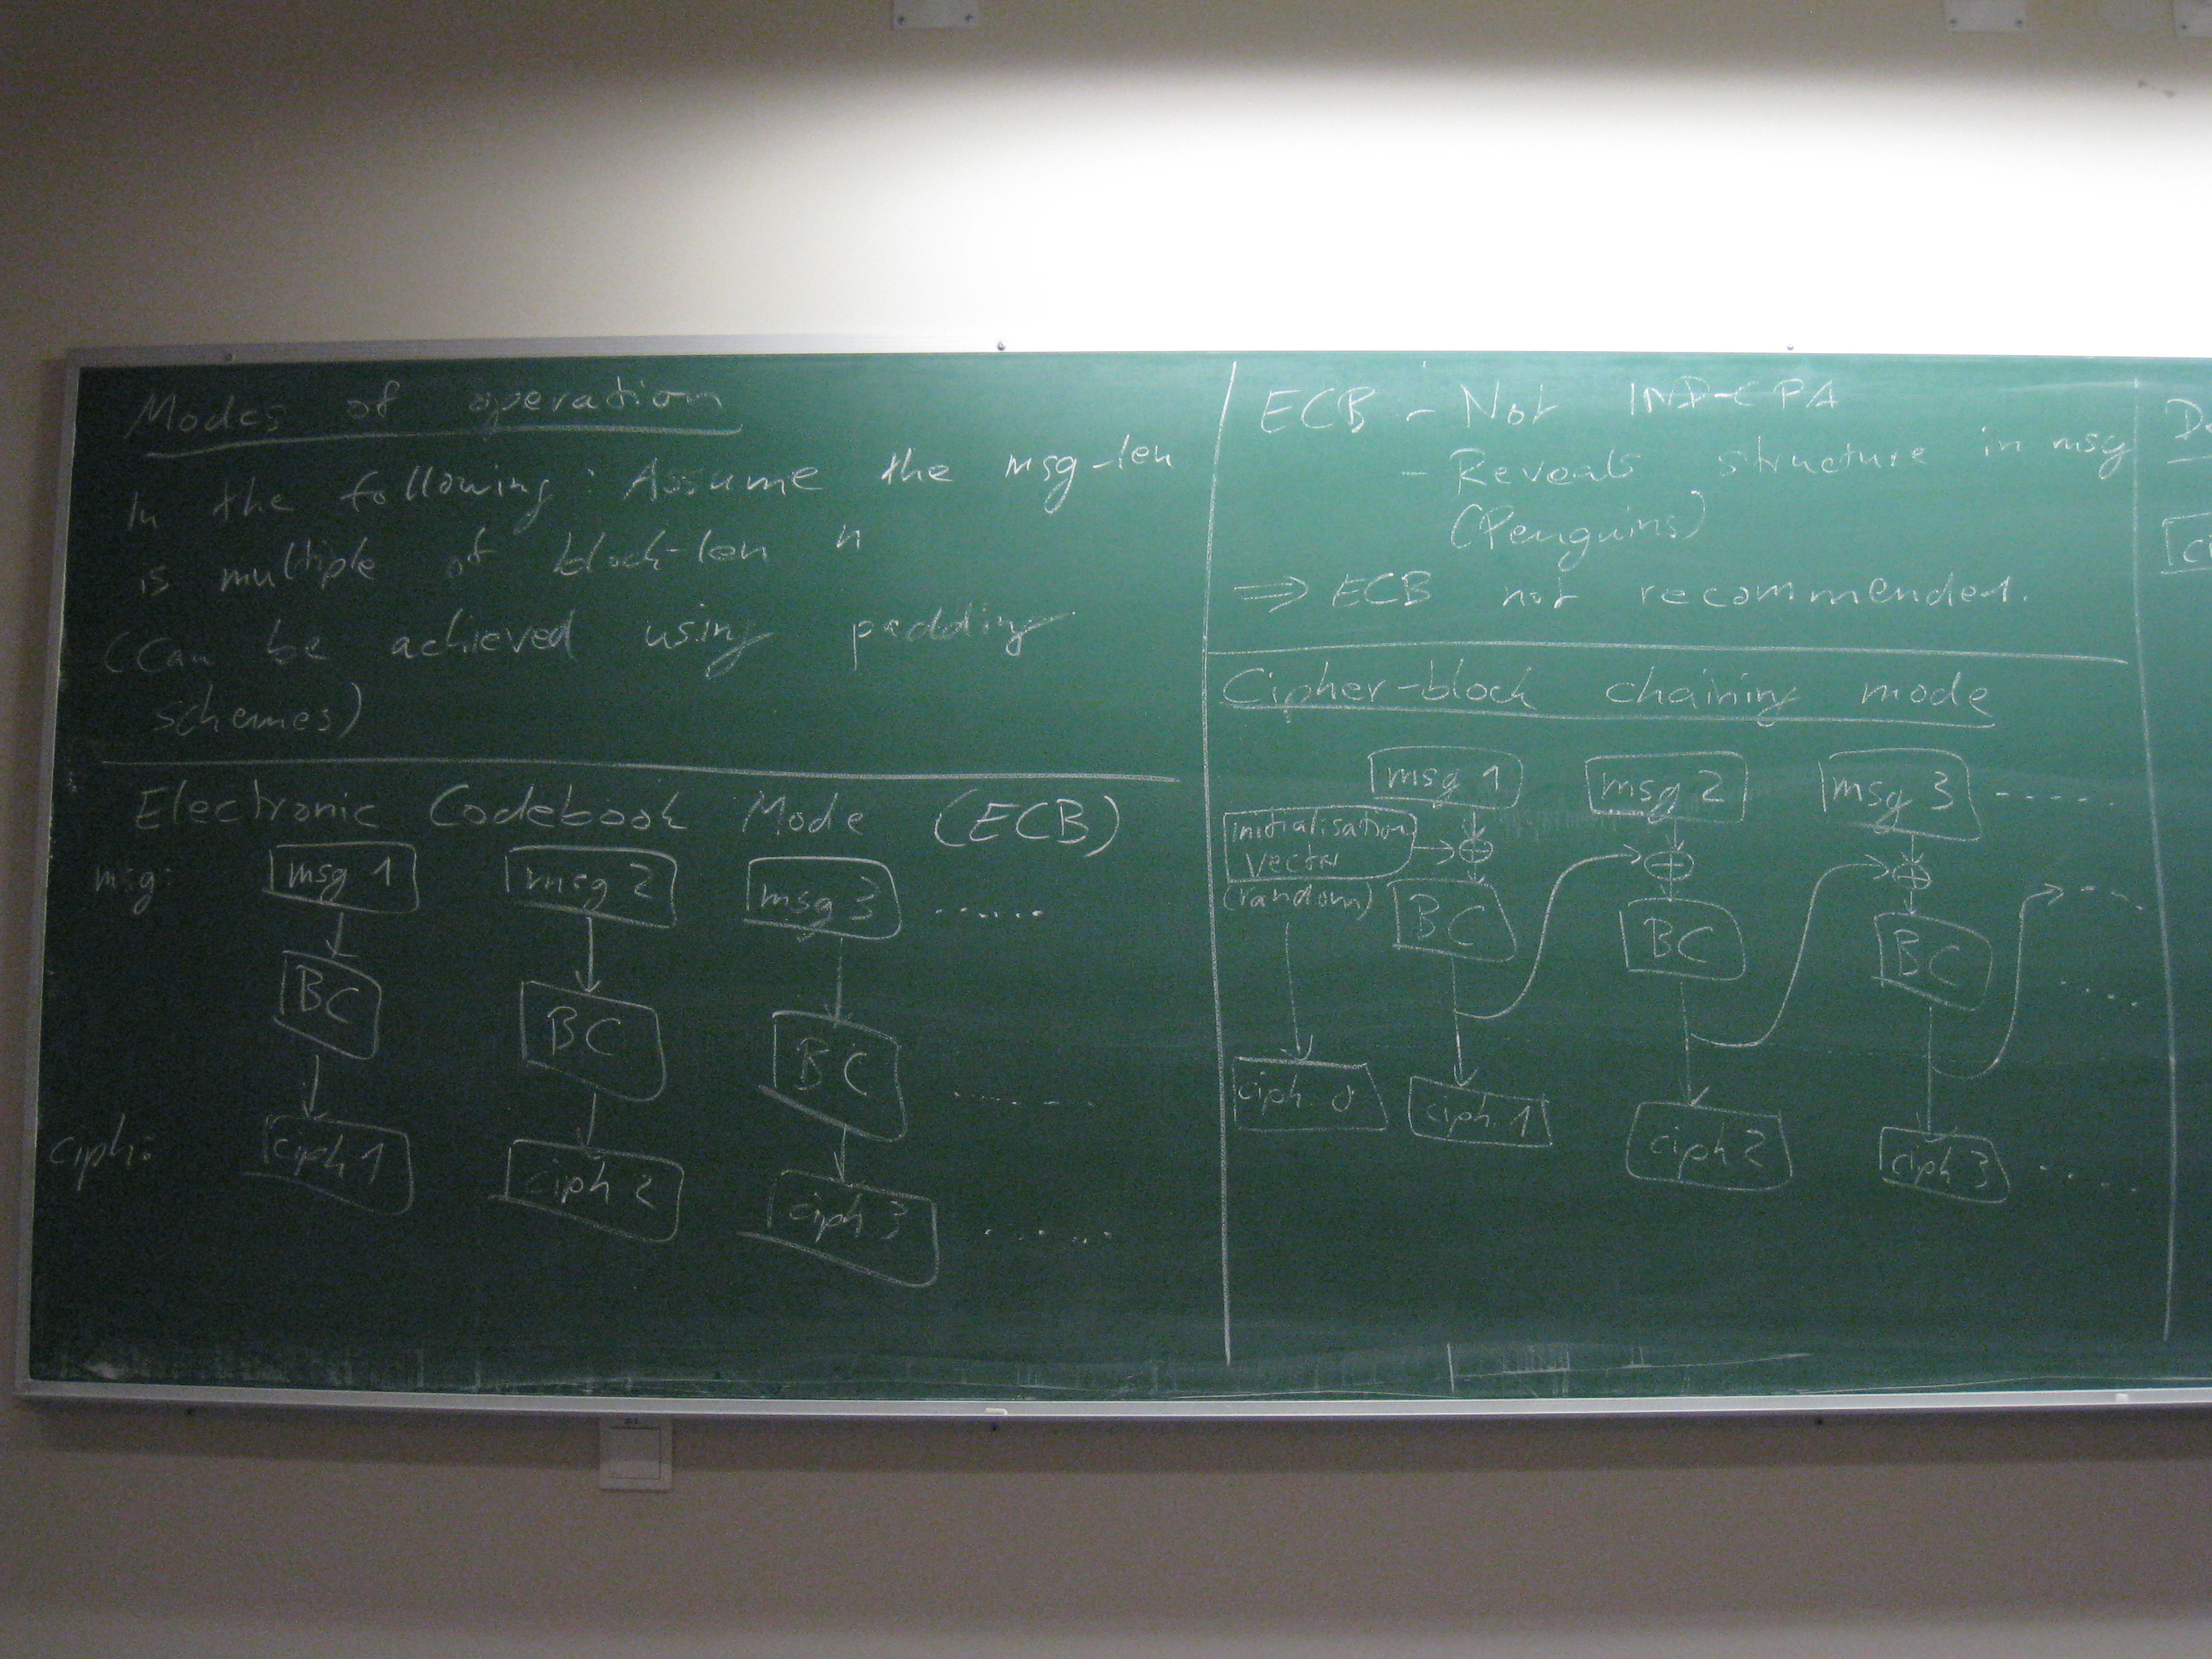 Modes of operation
In the following: Assume the msg-len
is multiple of block-len n
(Can be achieved using padding
schemes)
Electronic Codebook Mode (ECB)
msg: msg 1 msg 2 msg 3 ......
BC BC BC .......
ciph: ciph 1 ciph 2 ciph 3 ......
ECB - Not IND-CPA
- Reveals structure in msg
(Penguins)
⇒ ECB not recommended.
Cipher-block chaining mode
msg 1 msg 2 msg 3 ......
initialisation
vector
(random)
⊕ ⊕ ⊕ ....
BC BC BC .....
ciph 0 ciph 1 ciph 2 ciph 3 .....